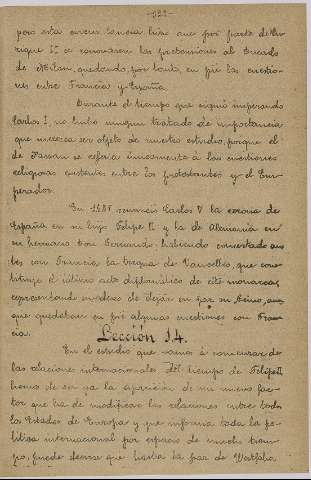 -122-
pero esta circunstancia hizo que por parte de En-
rique 2º se renovasen las pretensiones al Ducado
de Milan, quedando, por tanto, en pié las cuestio-
nes entre Francia y España.
Durante el tiempo que siguió imperando
Carlos I, no hubo ningun tratado de importancia
que merezca ser objeto de nuestro estudio, porque el
de Passau se referia únicamente á las cuestiones
religiosas existentes entre los protestantes y el Em-
perador.
En renunció Carlos V la corona de
España en su hijo Felipe II y la de Alemania en
su hermano Don Fernando, habiendo concertado an-
tes con Francia la tregua de Vaucelles, que cons-
tituye el último acto diplomático de este monarca,
respondiendo su deseo de dejar en paz su Reino, aun-
que quedaban en pié algunas cuestiones con Fran-
cia.
Lección 14.
En el estudio que vamos á comenzar de
las relaciones internacionales del tiempo de Felipe II
hemos de ver ya la aparición de un nuevo fac-
tor que ha de modificar las relaciones entre todos
los Estados de Europa y que informa toda la po-
lítica internacional por espacio de mucho tiem-
po, puede decirse que hasta la paz de Westfalia